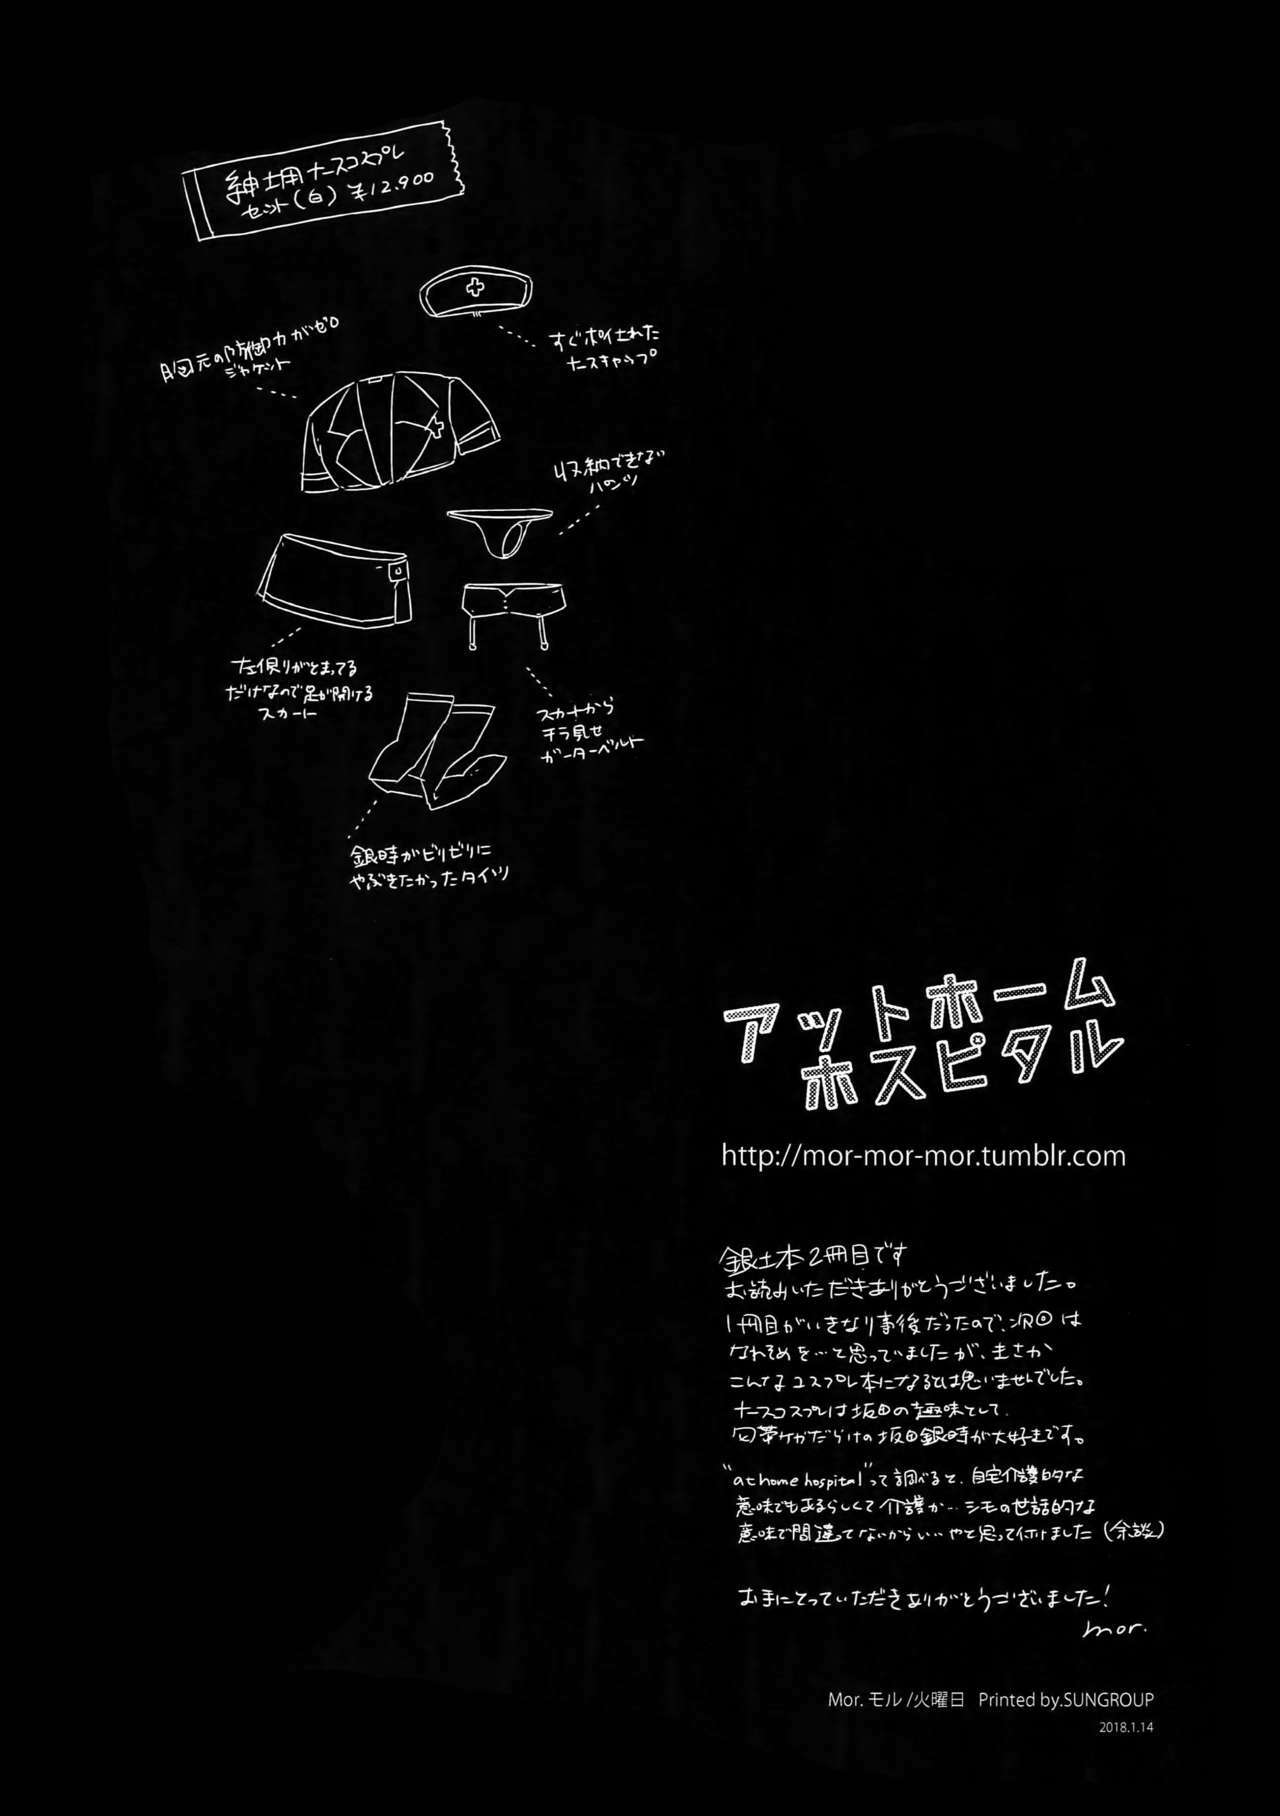 紳士用ナースコスプレ
セット(白) ¥12.900
すぐポイされた
ナースキャップ
胸元の防御力がゼロ
ジャケット
収納できない
パンツ
左側りがとまってる
だけなので足が開ける
スカート
スカートから
チラ見せ
ガーターベルト
銀時がビリビリに
やぶきたかったタイツ
アットホーム
ホスピタル
http://mor-mor-mor.tumblr.com
銀土本2冊目です
お読みいただきありがとうございました。
1冊目がいきなり事後だったので、次回は
なれそめを…と思っていましたが、まさか
こんなコスプレ本になるとは思いませんでした。
ナースコスプレは坂田の趣味として、
包帯ケガだらけの坂田銀時が大好きです。
"at home hospital"って調べると、自宅介護的な
意味でもあるらしくて介護か…シモの世話的な
意味で間違ってないからいいやと思って付けました(余談)
お手にとっていただきありがとうございました!
mor.
Mor. モル/火曜日 Printed by.SUNGROUP
2018.1.14